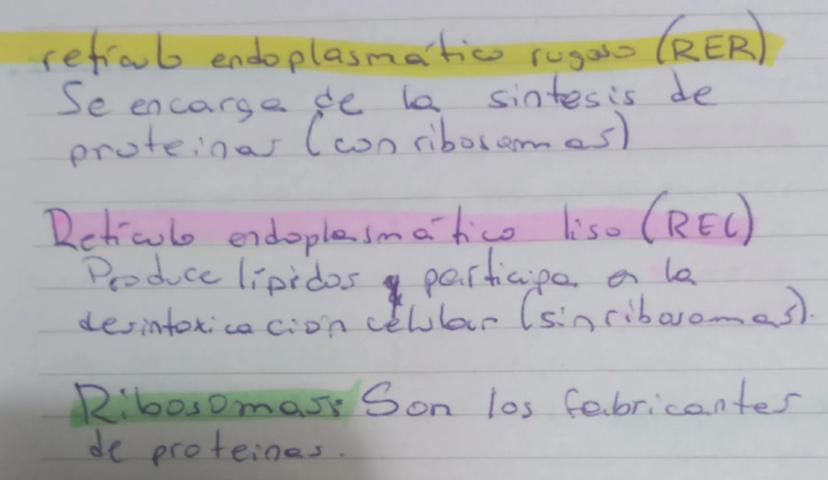 retículo endoplasmático rugoso (RER)
Se encarga de la sintesis de
proteinas (con ribosomas)
Retículo endoplasmático liso (REL)
Produce lípidos y participa en la
desintoxicación célular (sin ribosomas).
Ribosomas: Son los fabricantes
de proteinas.